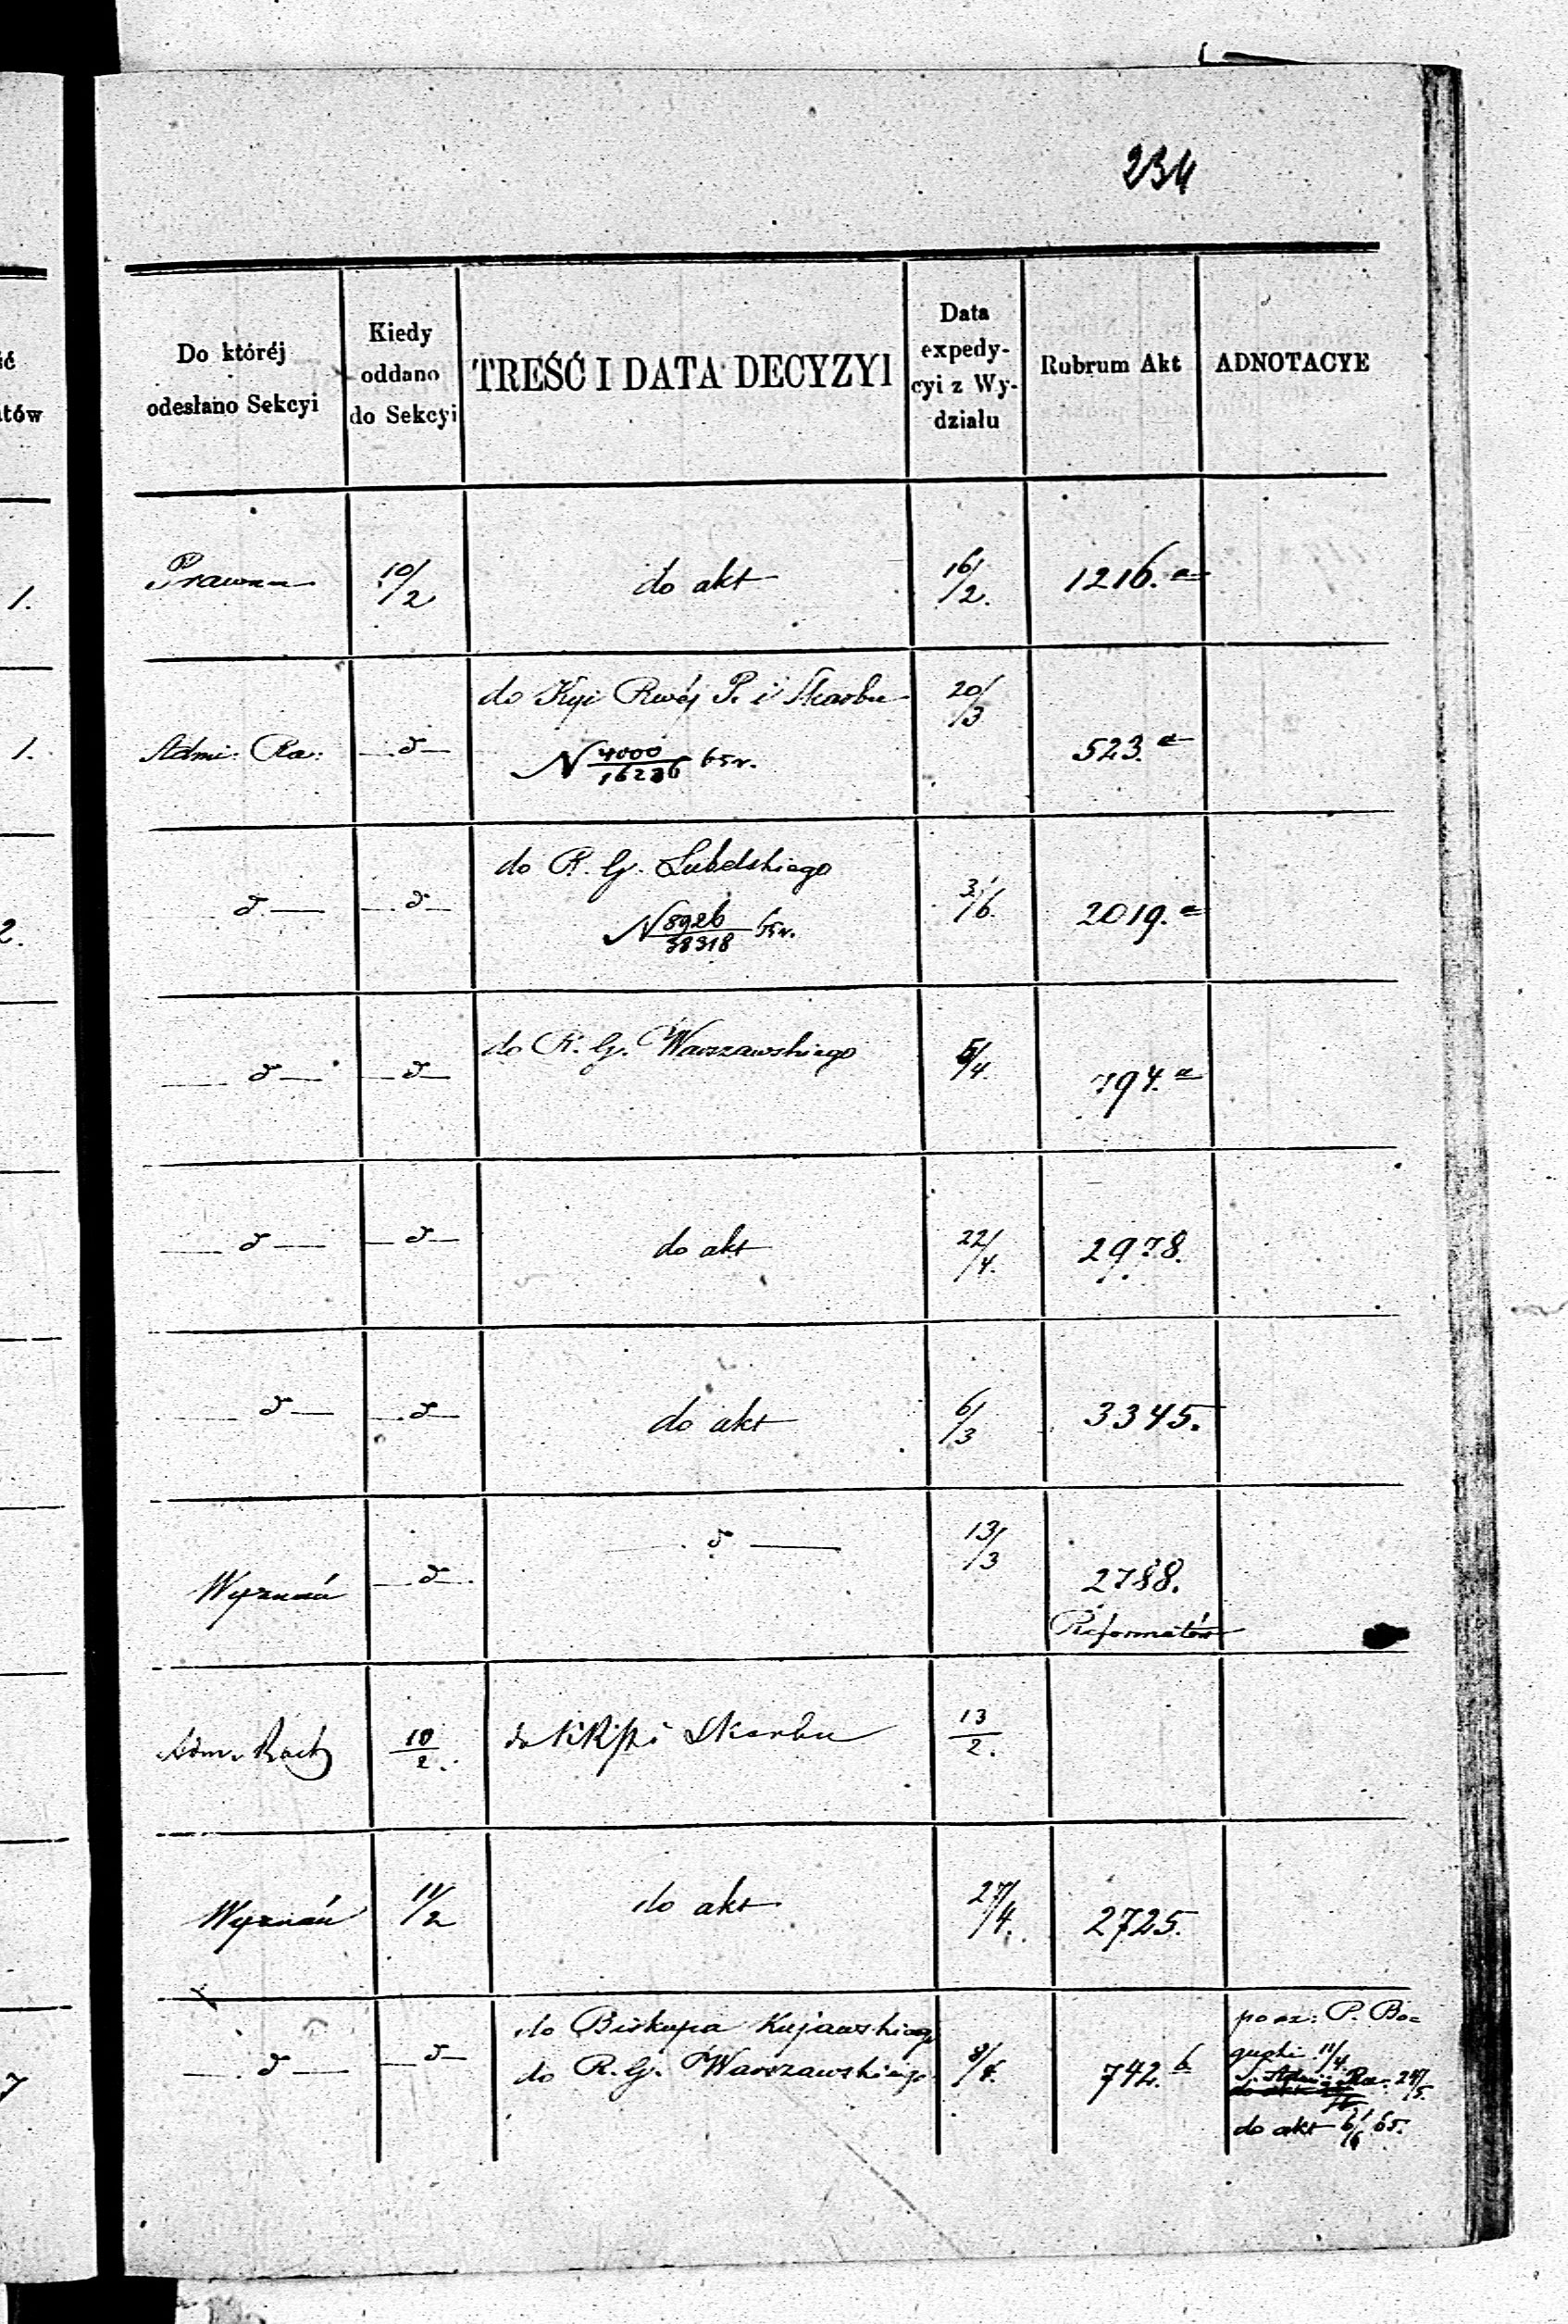 234
Do któréj
odesłano Sekcyi
Kiedy
oddano
do Sekcyi
TREŚĆ I DATA DECYZYI
Data
expedy-
cyi z Wy-
działu
Rubrum Akt
ADNOTACYE
ić
tów
1.
Prawna 10/2 do akt 16/2. 1216. a
do Kyi Rwéj P. i Skarbu 20/3
1.
Admi: Ra: — d — N 4000/16236 65 r. 523. a
do R. G. Lubelskiego
2.
— d — — d — N 8926/38318 65 r. 3/6. 2019. a
do R. G. Warszawskiego 5/4.
— d — — d — 794. a
— d — — d — do akt 22/4. 2978.
— d — — d — do akt 6/3 3345.
— d — 13/3
Wyznań — d — 2788.
Reformatów
Adm. Rach 10/2. do KRPi Skarbu 13/2.
Wyznań 11/2 do akt 27/4. 2725.
do Biskupa Kujawskiego
7
— d — — d — do R. G. Warszawskiego 8/4. 742. b
posz: P. Bo=
guski 11/4.
S. Adm: Ra: 24/5.
do akt 6/6 65.